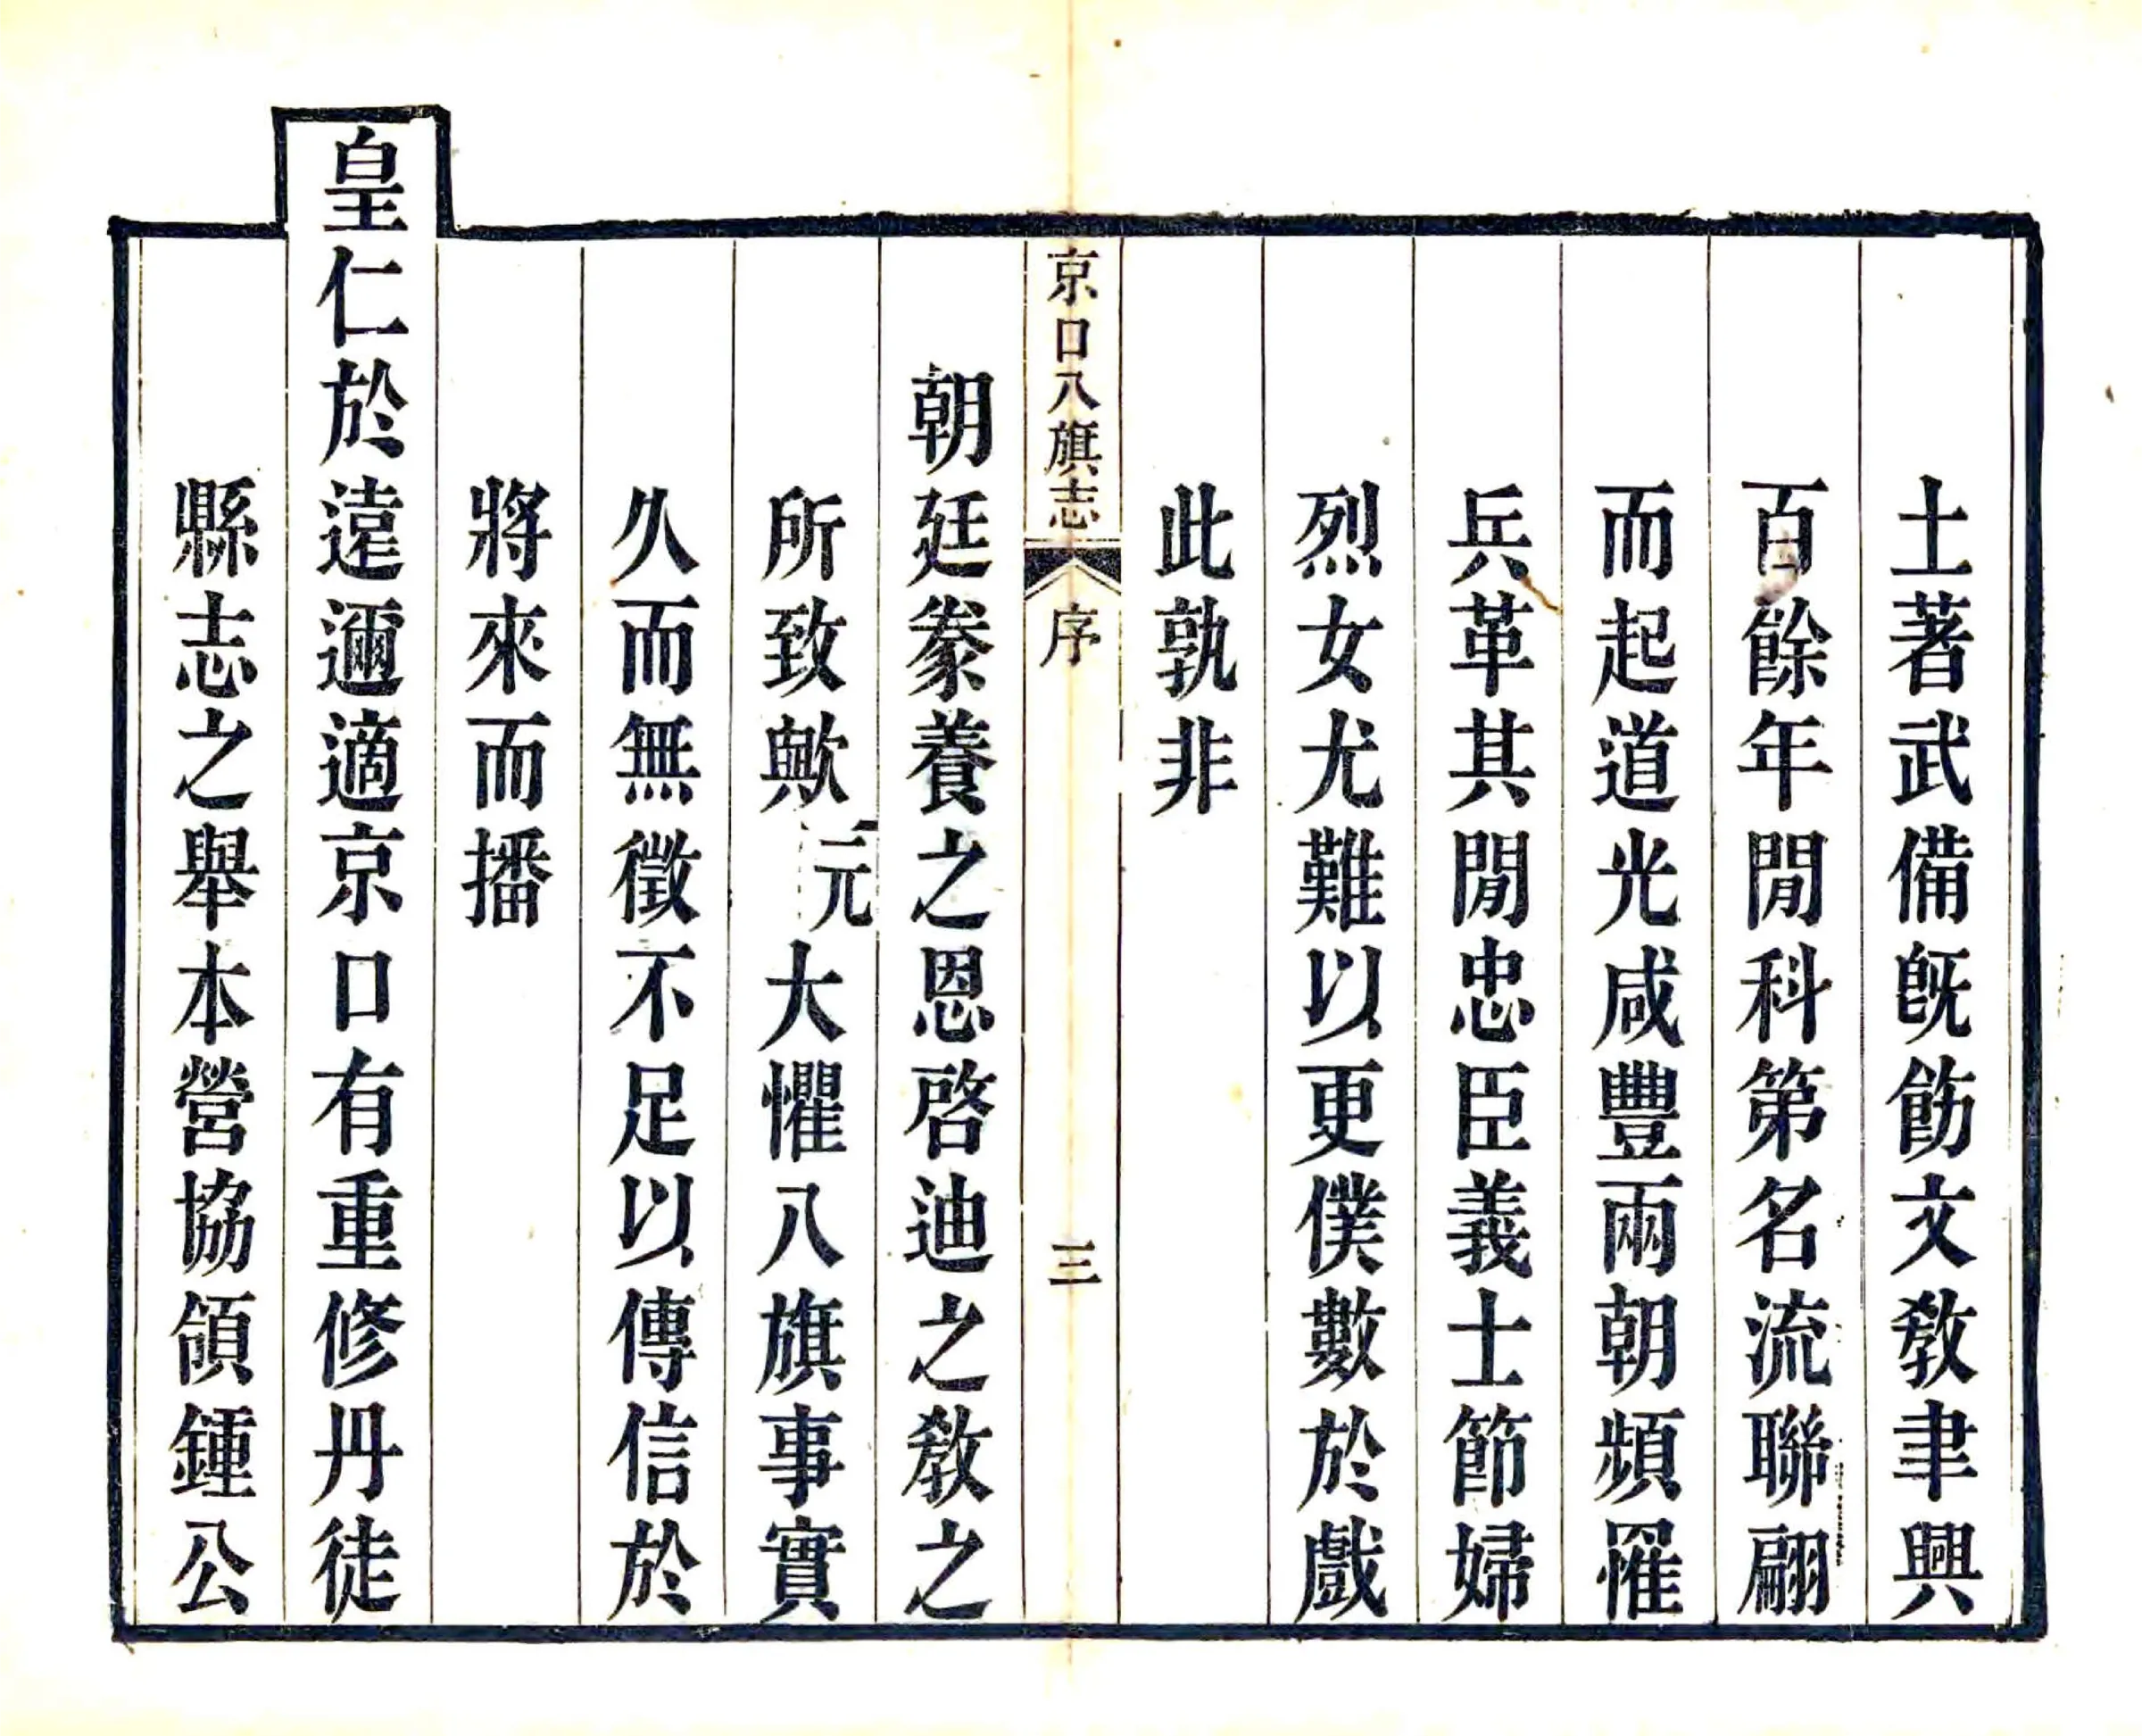 土著武備旣飭文敎聿興
百餘年閒科第名流聯翩
而起道光咸豐兩朝頻罹
兵革其閒忠臣義士節婦
烈女尤難以更僕數於戲
此孰非
京口八旗志 序 三
朝廷豢養之恩啓迪之敎之
所致歟元大懼八旗事實
久而無徵不足以傳信於
將來而播
皇仁於遠邇適京口有重修丹徒
縣志之舉本營協領鍾公